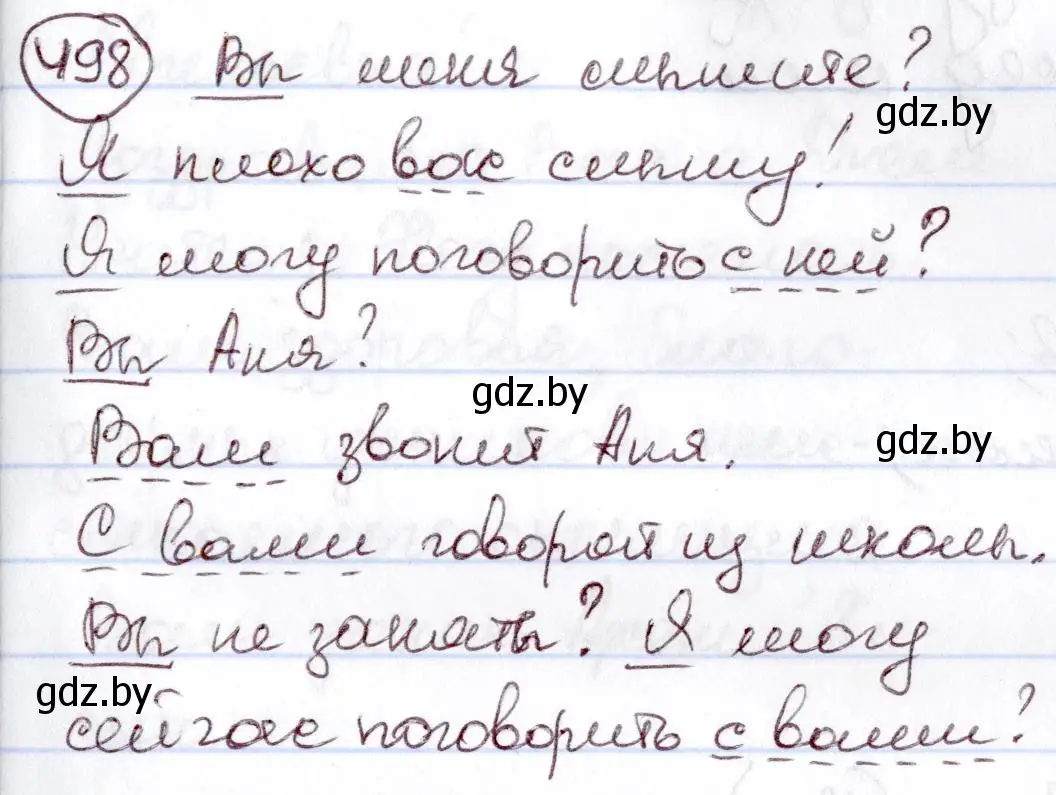 498 Вы меня слышите?
gdz.by
Я плохо вас слышу!
Я могу поговорить с ней?
Вы Аня?
gdz.by
Вам звонит Аня.
gdz.by
С вами говорят из школы.
Вы не заняты? Я могу
gdz.by
сейчас поговорить с вами?